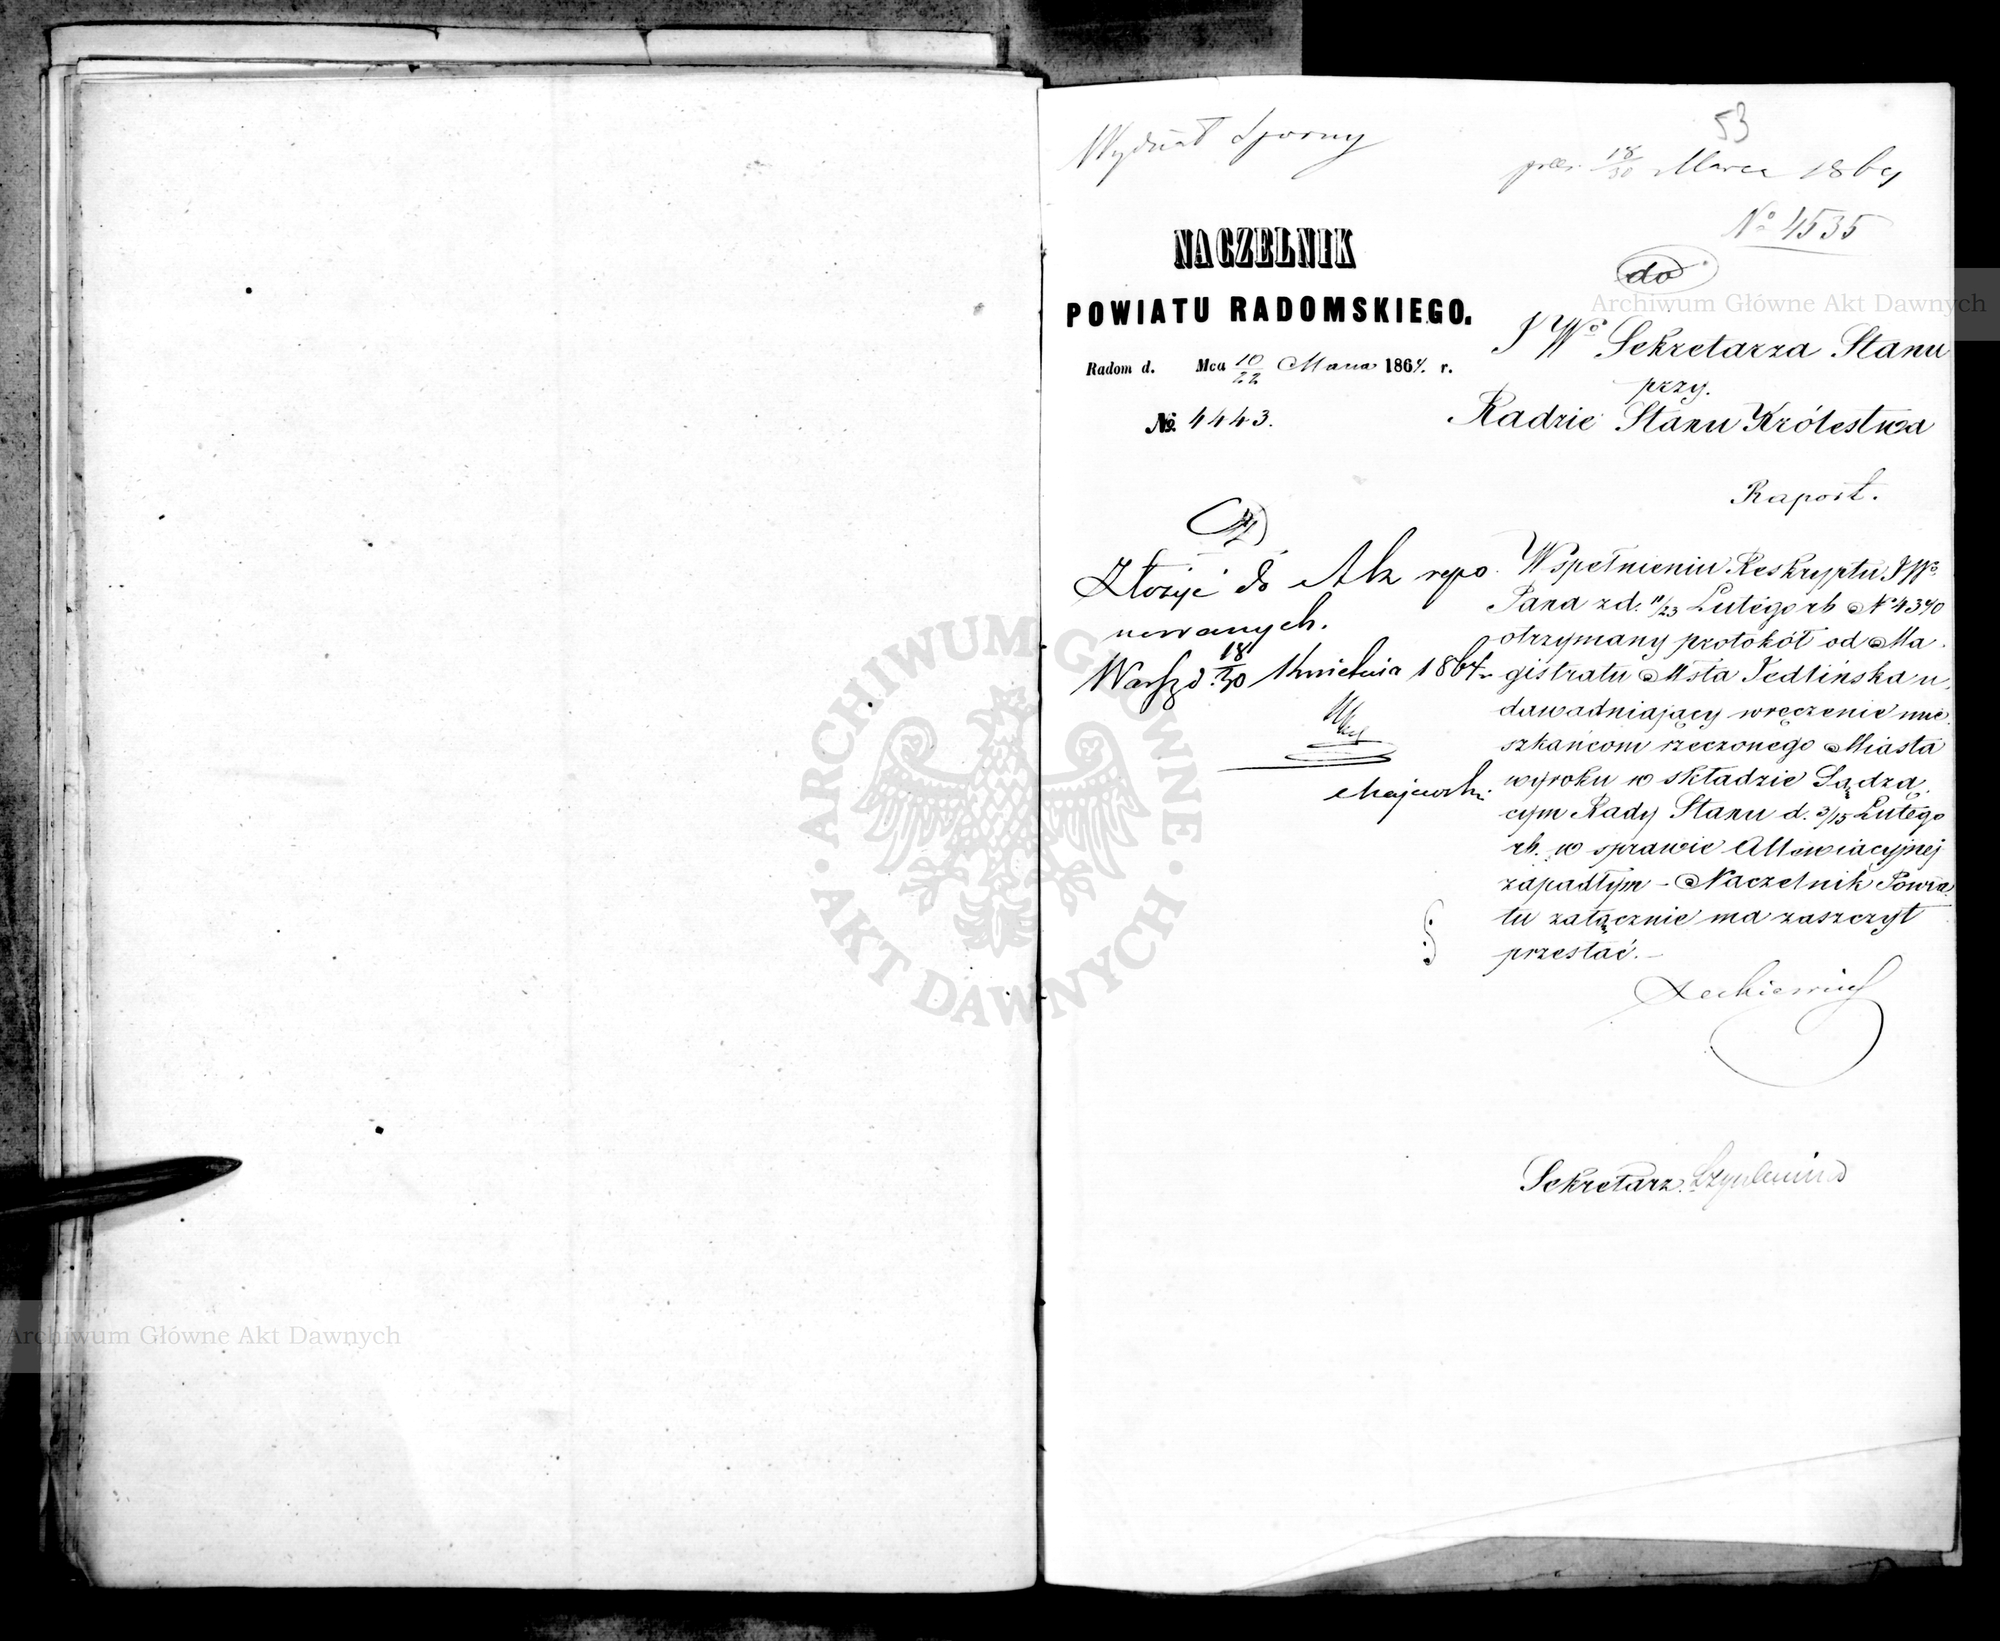 53
Wydział Sporny
prez. 18/30 Marca 1864
No 4535
NACZELNIK
POWIATU RADOMSKIEGO.
Radom d. Mca 10/22 Marca 1864. r.
No. 4443.
do
JWo Sekretarza Stanu
przy.
Radzie Stanu Królestwa
Raport.
Złożyć do Akt repo
nowanych.
Warsz d. 18/30 Kwietnia 1864
Majewski
W spełnieniu Reskryptu JWo
Pana z d. 11/23 Lutego rb No 4340
otrzymany protokół od Ma
gistratu Msta Jedlińska u
dawadniający wręczenie mie
szkańcom rzeczonego Miasta
wyroku w składzie Sądzą
cym Rady Stanu d. 3/15 Lutego
rb. w sprawie
zapadłym – Naczelnik Powia
tu załącznie ma zaszczyt
przesłać. –
Sekretarz
Archiwum Główne Akt Dawnych
ARCHIWUM GŁÓWNE · AKT DAWNYCH ·
Archiwum Główne Akt Dawnych